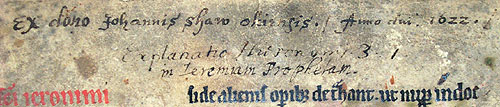 Ex dono Johannis Shaw oliensis. / Anno dni. 1622.
Explanatio Hieronymi 3. 1
in Jeremiam Prophetam.
ieronimi side aliens opibz de thant. ut nup in dot